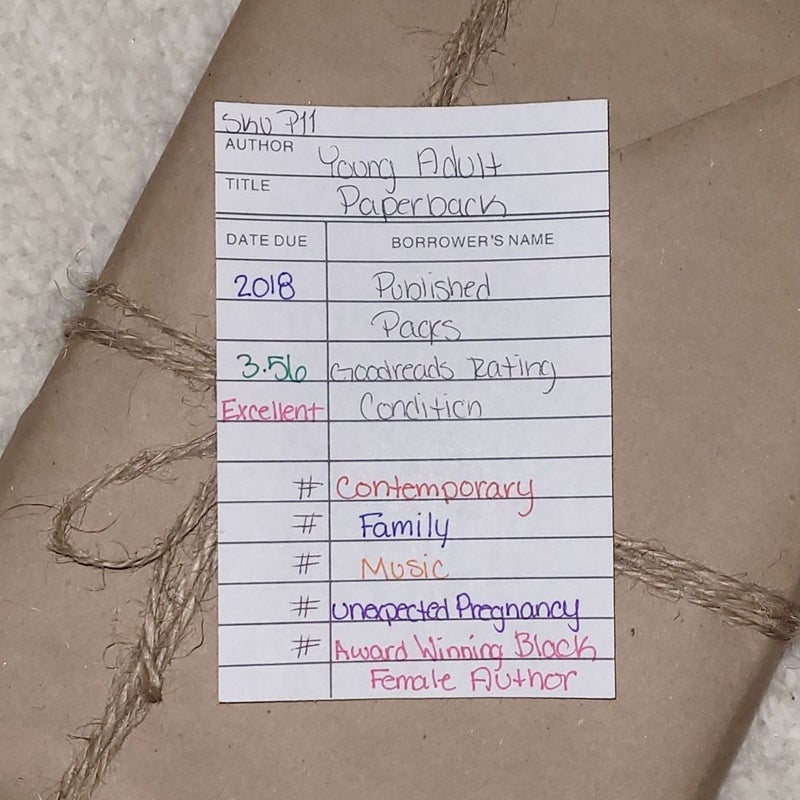 SKU P11
AUTHOR Young Adult
TITLE Paperback
DATE DUE BORROWER'S NAME
2018 Published
Pages
3.56 Goodreads Rating
Excellent Condition
# Contemporary
# Family
# Music
# Unexpected Pregnancy
# Award Winning Black
Female Author